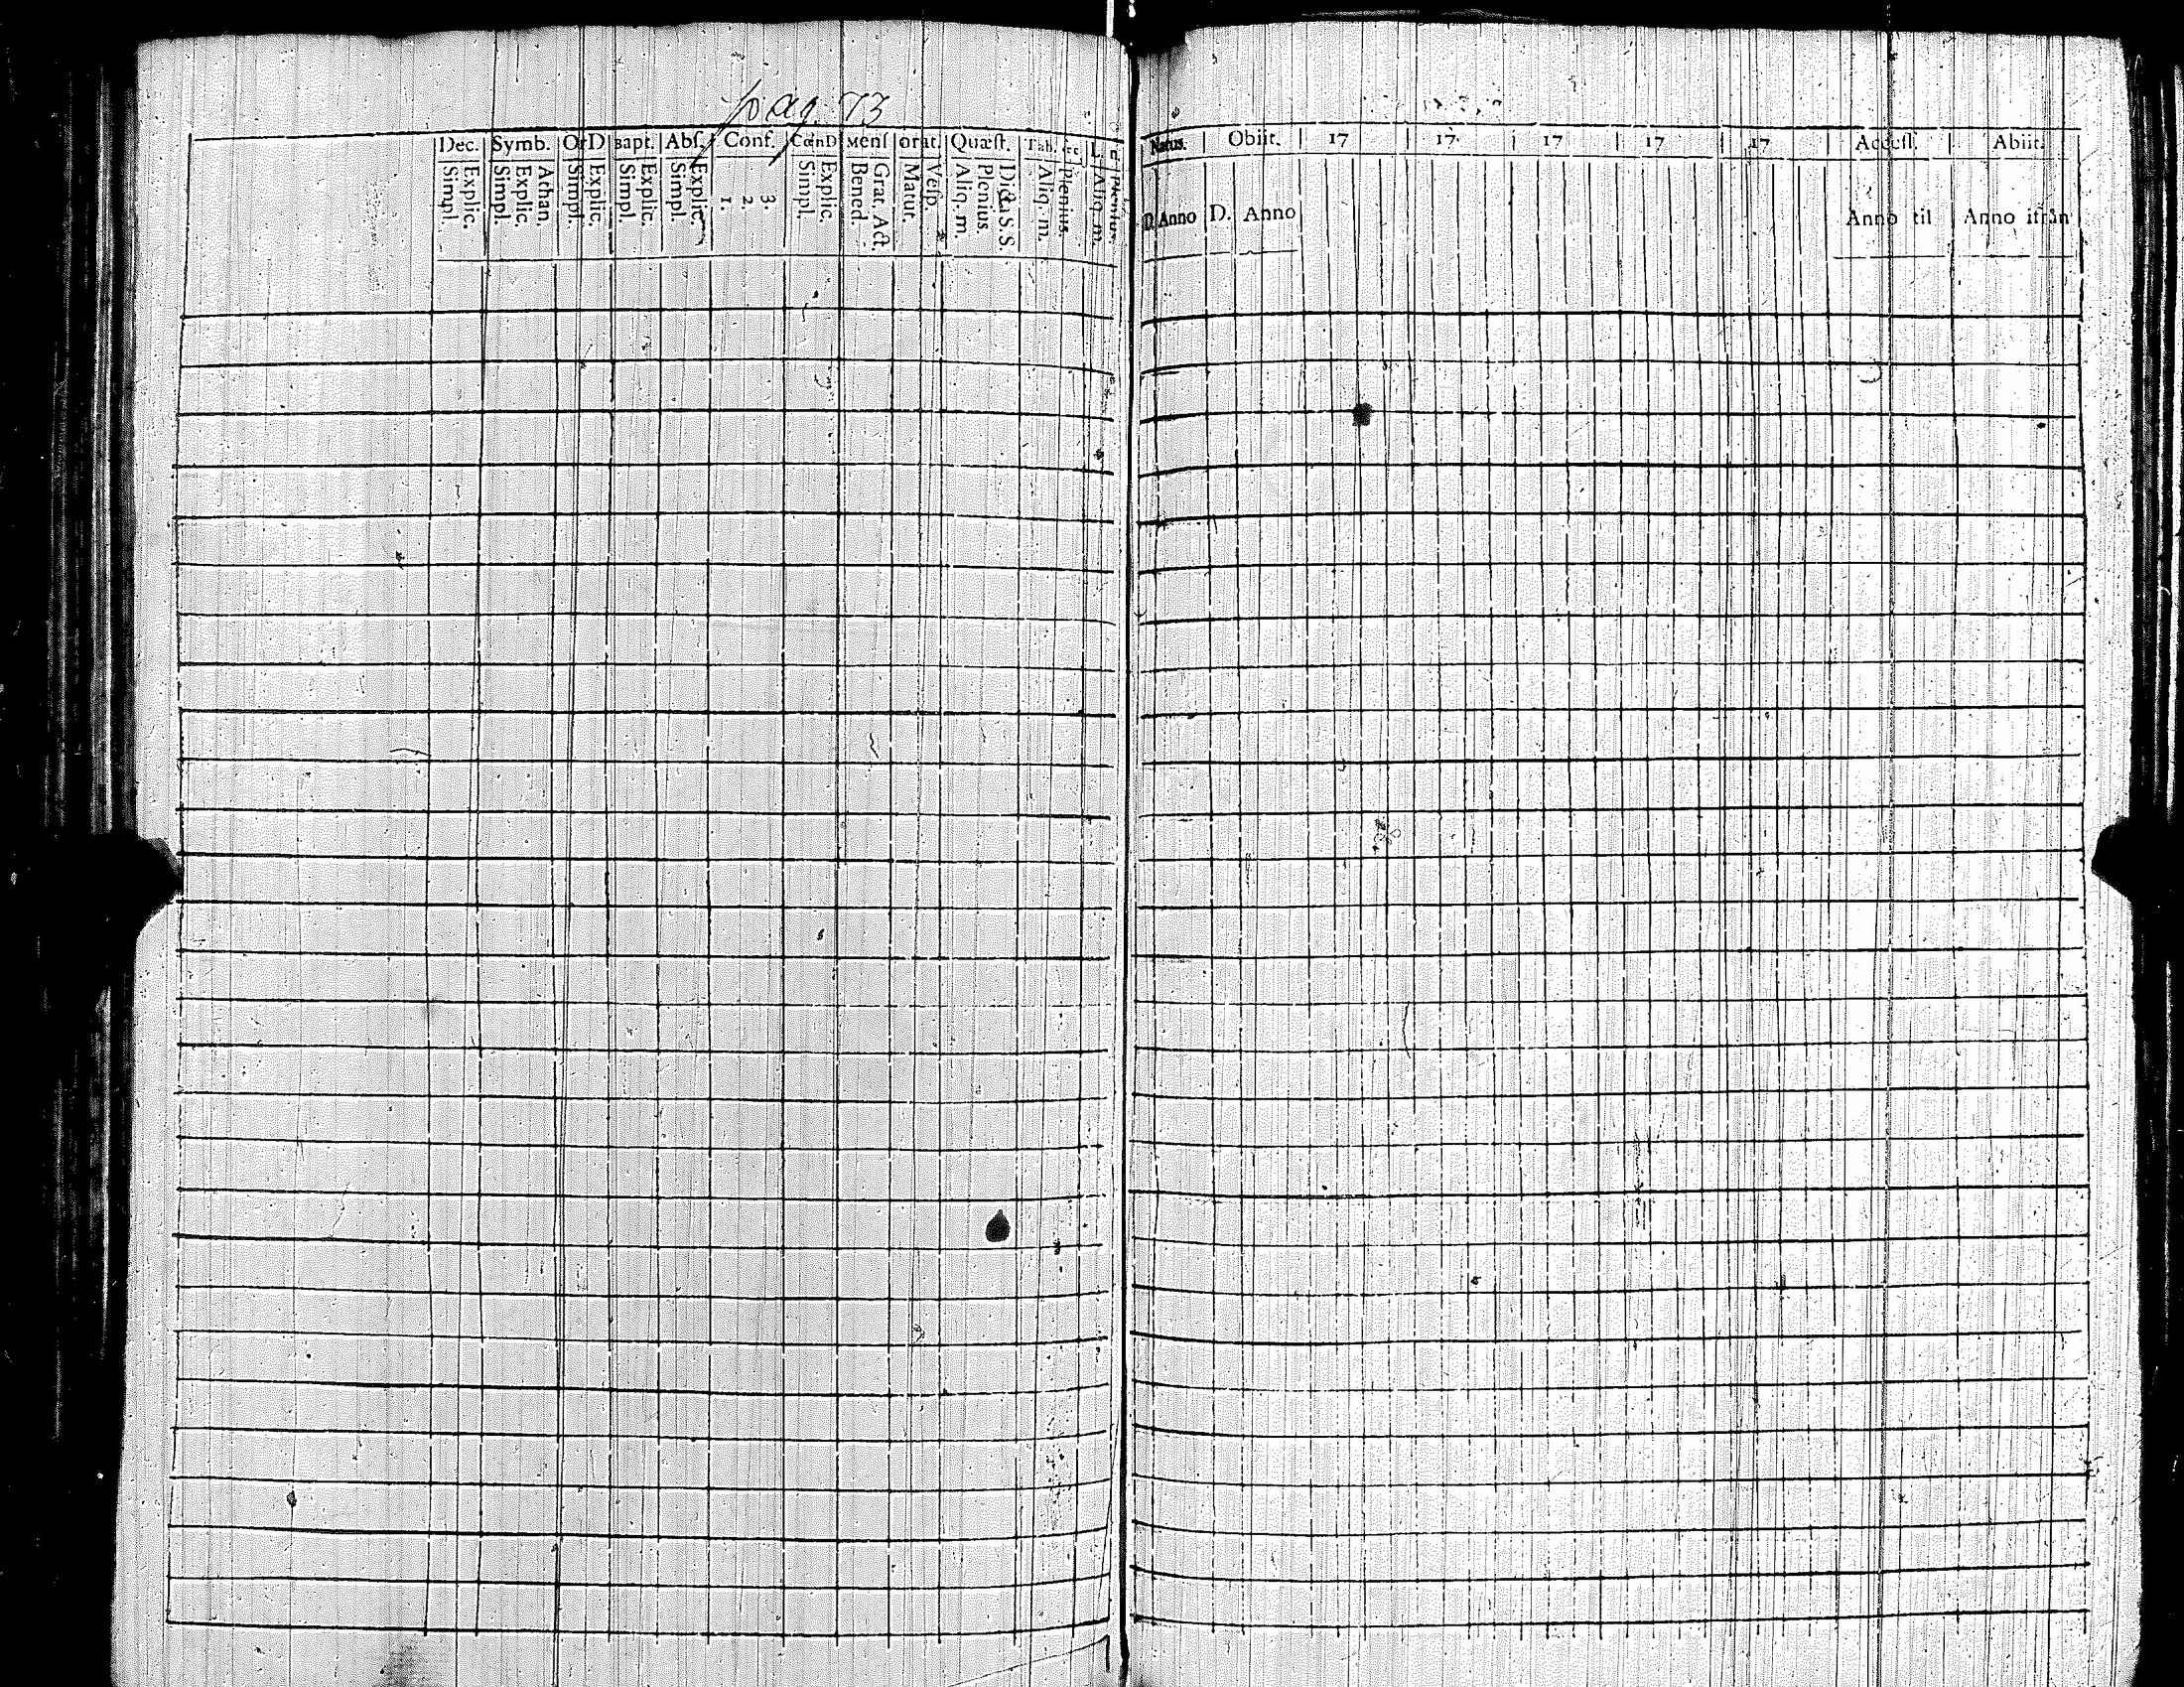 pag. 73
Dec. Symb. OrD Bapt. Abſ. Conf. CœnD Menſ orat. Quæſt. Tab.
Simpl. Explic. Simpl. Explic. Athan. Simpl. Explic. Simpl. Explic. Simpl. Explic. 1. 2. 3. Simpl. Explic. Bened. Grat. Act. Matut. Veſp. Aliq. m. Plenius. Dicta S. S. Aliq. m. Plenius. Aliq. m. Plenius.
Natus. Obiit. 17 17. 17 17 17 Acceſſ. Abiit.
D. Anno D. Anno Anno til Anno ifrån